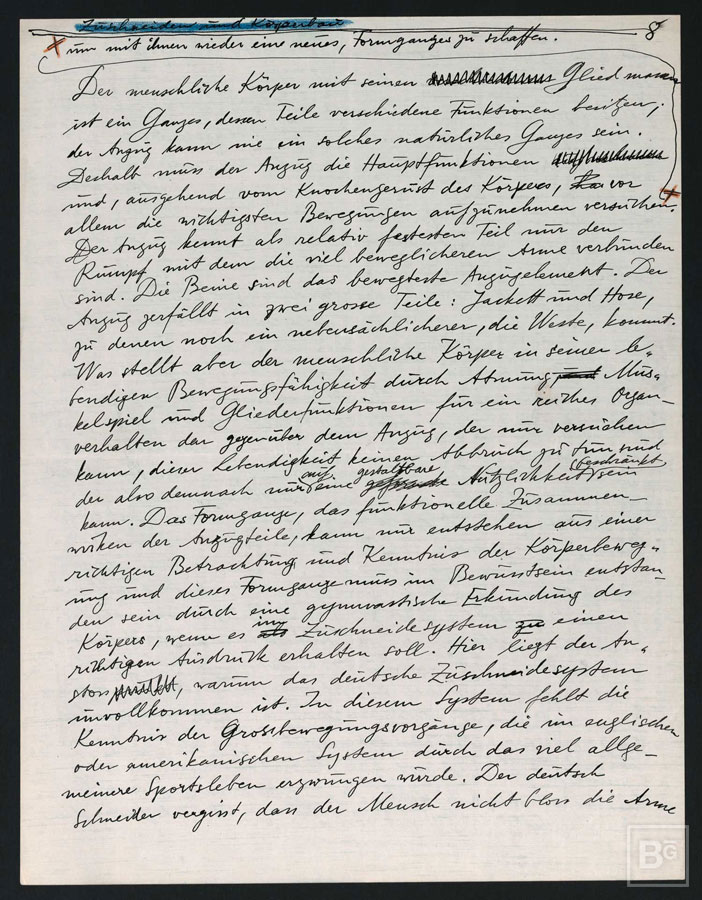 Zuschneiden und Körperbau
8
x um mit ihnen wieder eine neues, Formganzes zu schaffen.
Der menschliche Körper mit seinen Gliedmassen
ist ein Ganzes, dessen Teile verschiedene Funktionen besitzen;
der Anzug kann nie ein solches natürliches Ganzes sein.
Deshalb muss der Anzug die Hauptfunktionen
und, ausgehend vom Knochengerüst des Körpers, vor x
allem die wichtigsten Bewegungen aufzunehmen versuchen.
Der Anzug kennt als relativ festesten Teil nur den
Rumpf mit dem die viel beweglicheren Arme verbunden
sind. Die Beine sind das bewegteste Anzugelement. Der
Anzug zerfällt in zwei grosse Teile: Jackett und Hose,
zu denen noch ein nebensächlicherer, die Weste, kommt.
Was stellt aber der menschliche Körper in seiner le-
bendigen Bewegungsfähigkeit durch Atmung, Mus-
kelspiel und Gliederfunktionen für ein reiches Organ-
verhalten dar gegenüber dem Anzug, der nur versuchen
kann, dieser Lebendigkeit keinen Abbruch zu tun und
der also demnach nur auf eine gestaltbare Nützlichkeit beschränkt sein
kann. Das Formganze, das funktionelle Zusammen-
wirken der Anzugteile, kann nur entstehen aus einer
richtigen Betrachtung und Kenntnis der Körperbeweg-
ung und dieses Formganze muss im Bewusstsein entstan-
den sein durch eine gymnastische Erkundung des
Körpers, wenn es im Zuschneidesystem einen
richtigen Ausdruck erhalten soll. Hier liegt der An-
stoss, warum das deutsche Zuschneidesystem
unvollkommen ist. In diesem System fehlt die
Kenntnis der Grossbewegungsvorgänge, die im englischen
oder amerikanischen System durch das viel allge-
meinere Sportsleben erzwungen wurde. Der deutsche
Schneider vergisst, dass der Mensch nicht bloss die Arme
BG